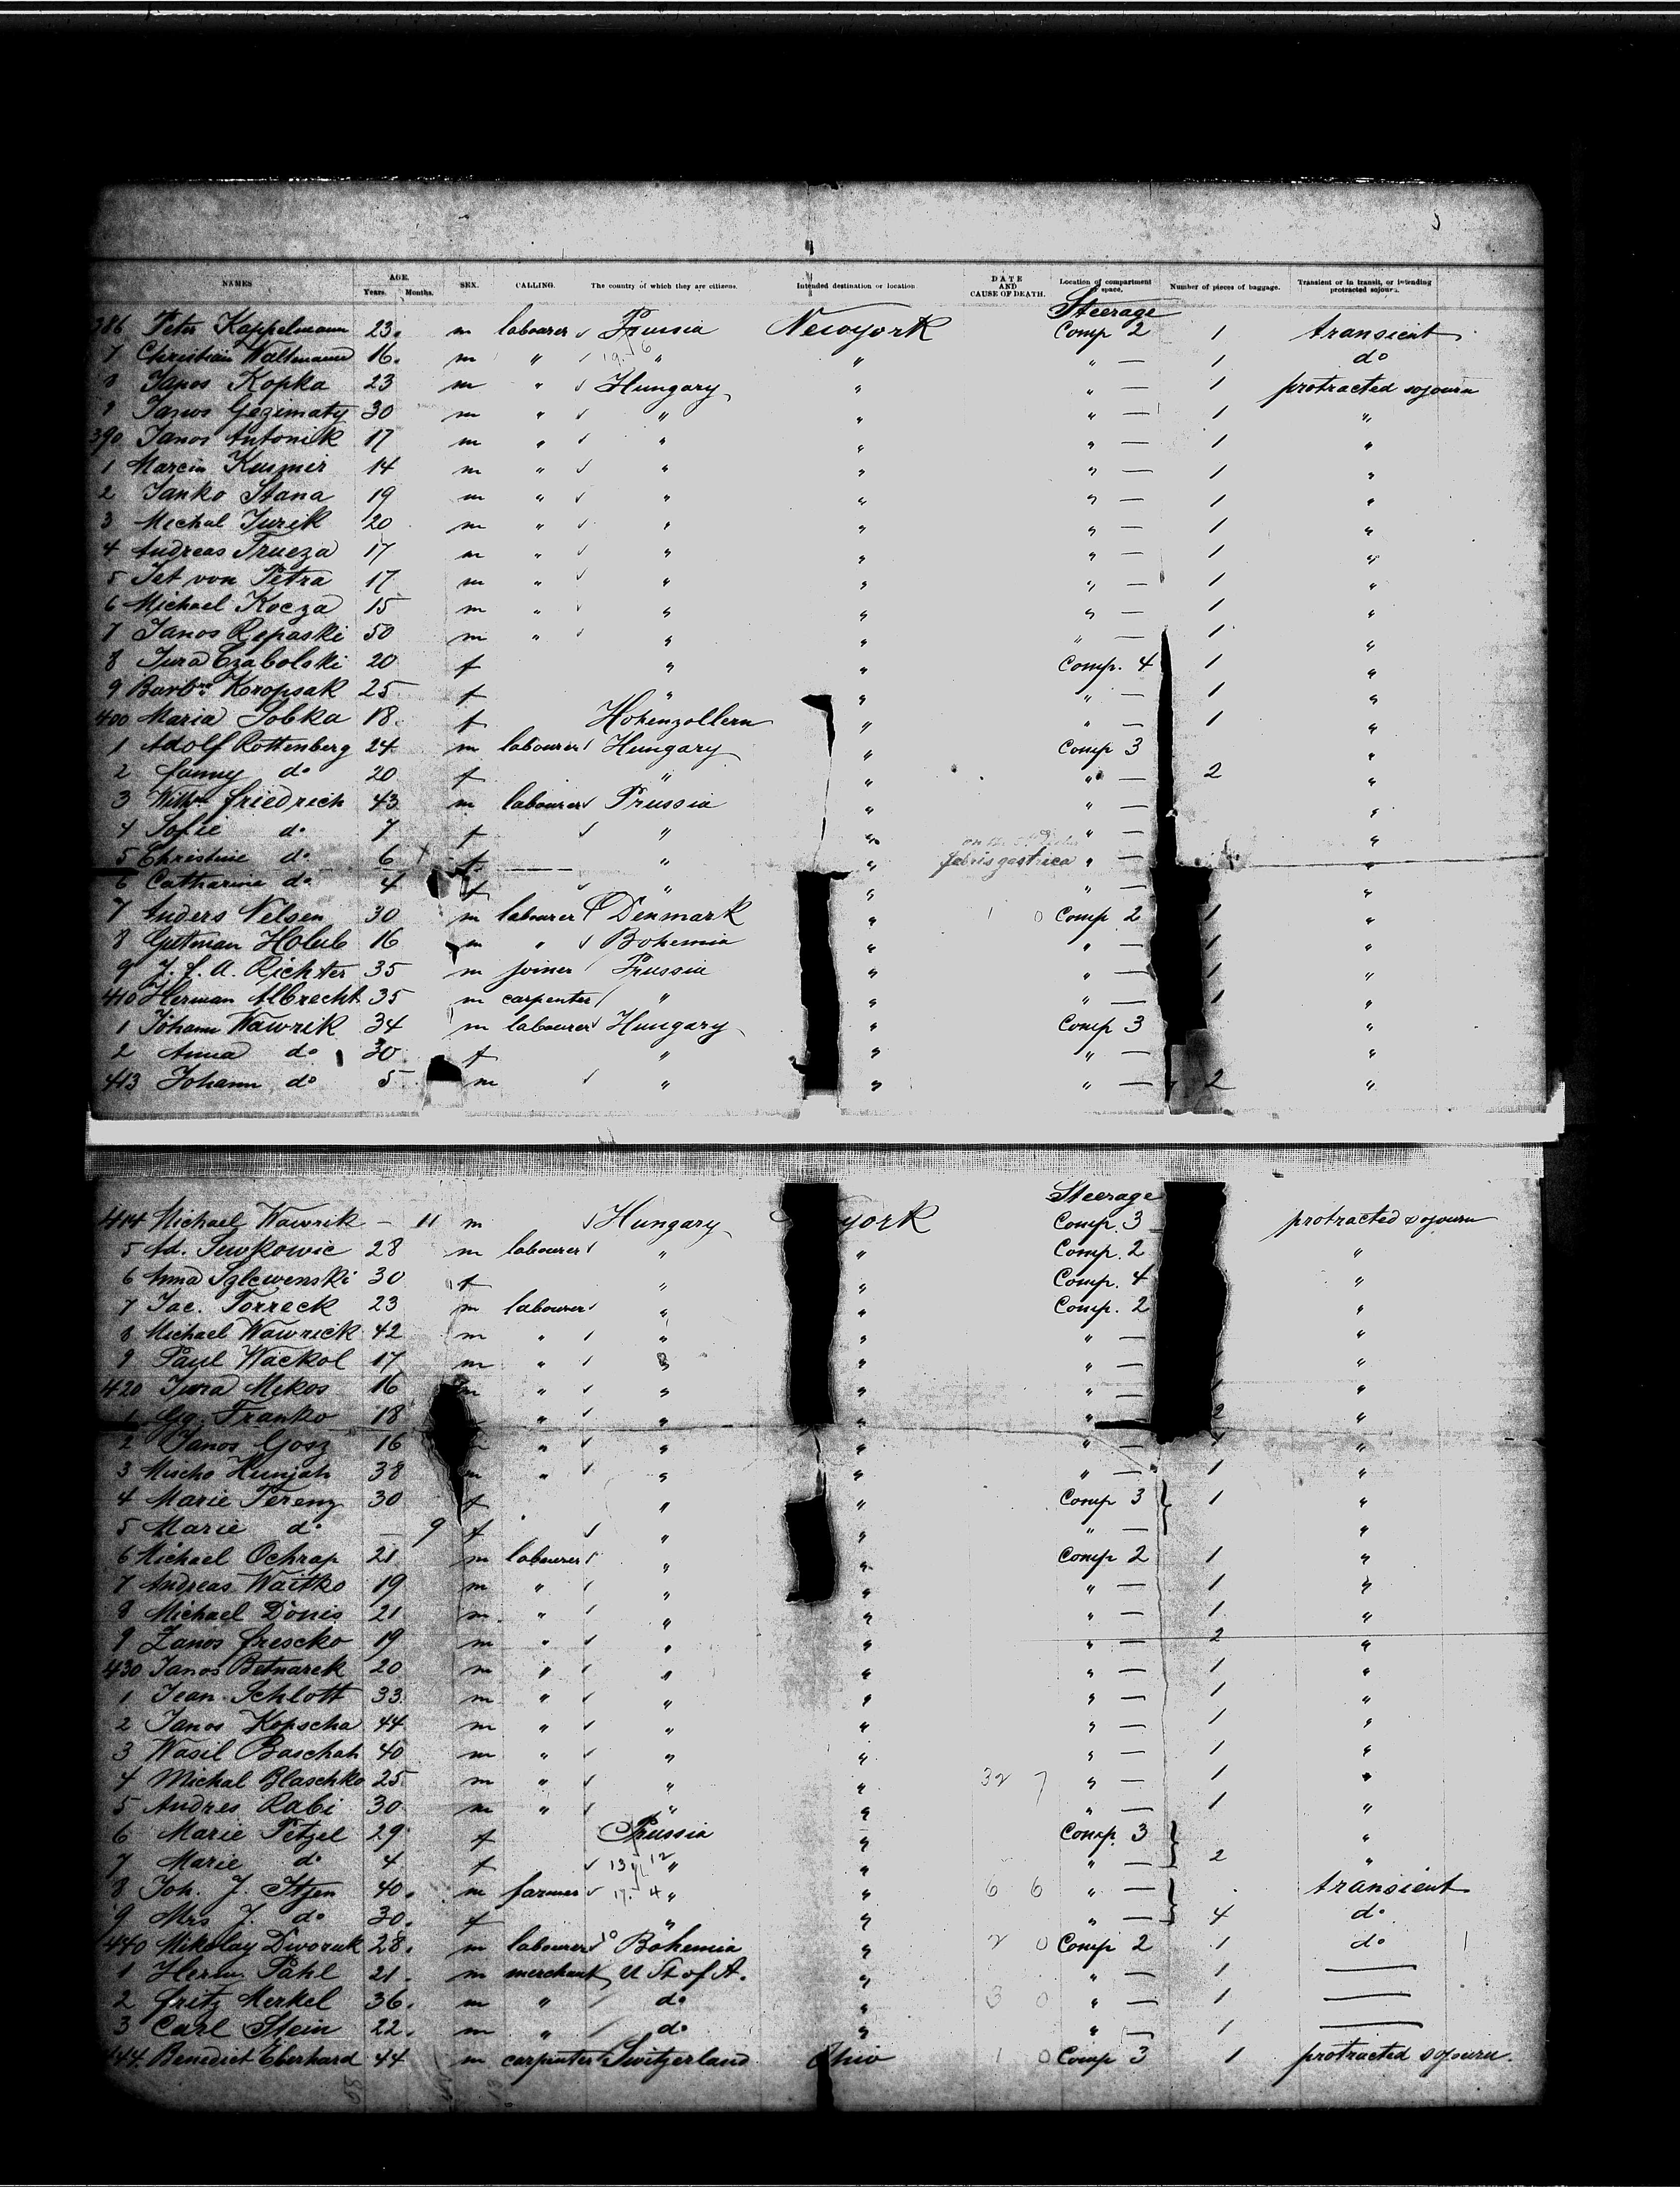 NAMES AGE. Years. Months. SEX. CALLING. The country of which they are citizens. Intended destination or location DATE AND CAUSE OF DEATH. Location of compartment space. Number of pieces of baggage. Transient or in transit, or intending protracted sojourn.
Steerage
386 Peter Kappelmann 23. m labourer Prussia Newyork Comp 2 1 transient
7 Christian Waltmann 16. m " " " " — 1 do
8 Janos Kopka 23 m " Hungary " " — 1 protracted sojourn
9 Janos Gezimaty 30 m " " " " — 1 "
390 Janos Antonik 17 m " " " " — 1 "
1 Marcin Kusmir 14 m " " " " — 1 "
2 Janko Stana 19 m " " " " — 1 "
3 Michal Jurik 20 m " " " " — 1 "
4 Andreas Trueza 17 m " " " " — 1 "
5 Jet von Petra 17 m " " " " — 1 "
6 Michael Kocza 15 m " " " " — 1 "
7 Janos Repaski 50 m " " " " — 1 "
8 Jura Czabolski 20 f " " Comp. 4 1 "
9 Barbra Kropsak 25 f " " " — 1 "
400 Maria Sobka 18. f Hohenzollern " " — 1 "
1 Adolf Rottenberg 24 m labourer Hungary " Comp 3 "
2 Fanny do 20 f " " " — 2 "
3 Wilhm Friedrich 43 m labourer Prussia " " — "
4 Sofie do 7 f " " " — "
5 Christine do 6 f " " febris gastrica " — "
6 Catharine do 4 f " " " — "
7 Anders Nelsen 30 m labourer Denmark " 1 0 Comp 2 1 "
8 Gutman Holub 16 m " Bohemia " " — 1 "
9 J. F. A. Richter 35 m joiner Prussia " " — 1 "
410 Herman Albrecht 35 m carpenter " " " — 1 "
1 Johann Wawrik 34 m labourer Hungary " Comp 3 "
2 Anna do 30 f " " " — "
413 Johann do 5 m " " " — 2 "
Steerage
414 Michael Wawrik — 11 m Hungary york Comp. 3 protracted sojourn
5 Ad. Sewkowic 28 m labourer " " Comp. 2 "
6 Anna Szlewenski 30 f " " Comp. 4 "
7 Jac. Torreck 23 m labourer " " Comp. 2 "
8 Michael Wawrick 42 m " " " " — "
9 Paul Wackol 17 m " " " " — "
420 Jura Mikos 16 m " " " " — 1 "
1 Gg. Franko 18 " " " " — 2 "
2 Janos Gosz 16 " " " " — 1 "
3 Mischo Hunjah 38 m " " " " — 1 "
4 Marie Ferenz 30 f " " Comp 3 1 "
5 Marie do — 9 f " " " — "
6 Michael Ochrap 21 m labourer " " Comp 2 1 "
7 Andreas Waitko 19 m " " " " — 1 "
8 Michael Donis 21 m " " " " — 1 "
9 Janos Frescko 19 m " " " " — 2 "
430 Janos Betnarek 20 m " " " " — 1 "
1 Jean Schlott 33 m " " " " — 1 "
2 Janos Kopscha 44 m " " " " — 1 "
3 Wasil Baschah 40 m " " " " — 1 "
4 Michal Blaschko 25 m " " " 32 7 " — 1 "
5 Andres Rabi 30 m " " " " — 1 "
6 Marie Petzel 29 f Prussia " Comp. 3 "
7 Marie do 4 f 13 12 " " " — 2 "
8 Joh. J. Itjen 40. m farmer 17. 4 " " 6 6 " — transient
9 Mrs J. do 30. f " " " — 4 do
440 Mikolay Dworak 28. m labourer Bohemia " 2 0 Comp 2 1 do
1 Herm. Pahl 21. m merchant U St of A. " " — 1 —
2 Fritz Merkel 36. m " do " 3 0 " — 1 —
3 Carl Stein 22. m " do " " — 1 —
444 Benedict Eberhard 44 m carpenter Switzerland Ohio 1 0 Comp 3 1 protracted sojourn.